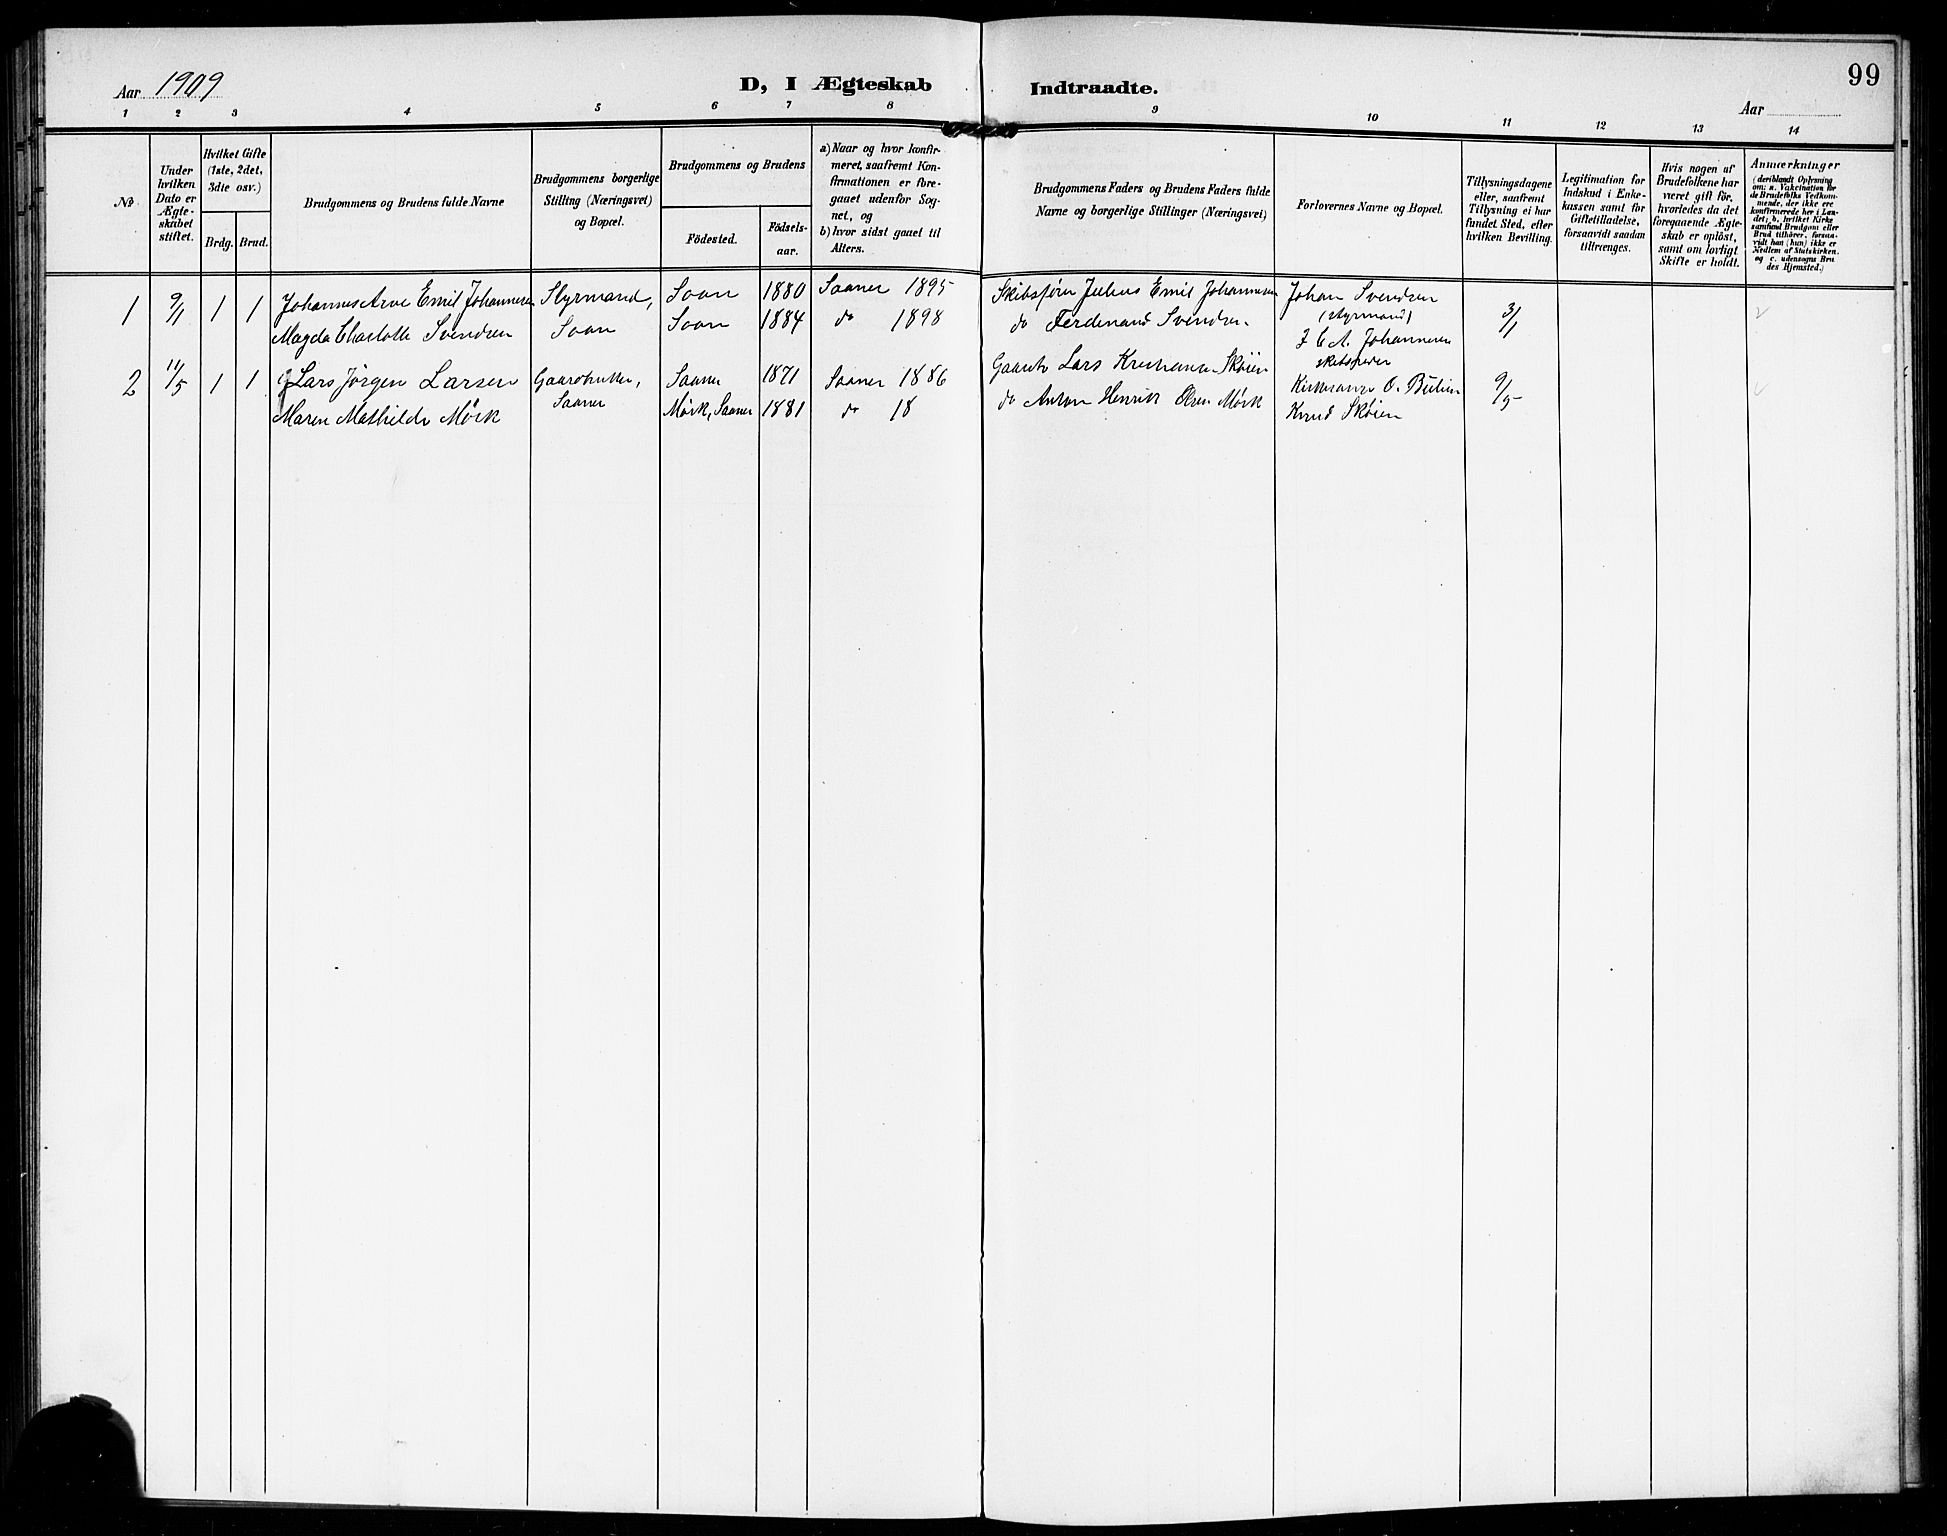 99
Aar 1909
D, I Ægteskab Indtraadte.
Aar
1 2 3 4 5 6 7 8 9 10 11 12 13 14
No
Under
hvilken
Dato er
Ægte-
skabet
stiftet.
Hvilket Gifte
(1ste, 2det,
3die osv.)
Brdg. Brud.
Brudgommens og Brudens fulde Navne
Brudgommens borgerlige
Stilling (Næringsvei)
og Bopæl.
Brudgommens og Brudens
Födested.
Födsels-
aar.
a) Naar og hvor konfir-
meret, saafremt Kon-
firmationen er fore-
gaaet udenfor Sog-
net, og
b) hvor sidst gaaet til
Alters.
Brudgommens Faders og Brudens Faders fulde
Navne og borgerlige Stillinger (Næringsvei)
Forlovernes Navne og Bopæl.
Tillysningsdagene
eller, saafremt
Tillysning ei har
fundet Sted, efter
hvilken Bevilling.
Legitimation for
Indskud i Enke-
kassen samt for
Giftetilladelse,
forsaavidt saadan
tiltrænges.
Hvis nogen af
Brudefolkene har
været gift för,
hvorledes da det
foregaaende Ægte-
skab er oplöst,
samt om lovligt
Skifte er holdt.
Anmærkninger
(deriblandt Oplysning
om: a. Vakcination for
de Brudefolks Vedkom-
mende, der ikke ere
konfirmerede her i Lan-
det; b. hvilket Kirke
samfund Brudgom eller
Brud tilhörer, forsaa-
vidt han (hun) ikke er
Medlem af Statskirken,
og c. udensogns Bru
des Hjemsted.)
1 9/1 1 1 Johannes Arve Emil Johannesen Styrmand, Soon 1880 Saaner 1895 Skibsförer Julius Emil Johannesen Johan Svendsen 3/1
Magda Charlotte Svendsen Soon Soon 1884 do 1898 do Ferdinand Svendsen (styrmand)
J C A. Johannesen
skibsreder
2 11/5 1 1 Lars Jörgen Larsen Gaardbruker, Saaner 1871 Saaner 1886 Gaardb Lars Kristiansen Sköien Kirkesanger O. 9/5
Maren Mathilde Mörk Saaner Mörk, Saaner 1881 do 18 do Anton Henrik Olsen Mörk Knud Sköien